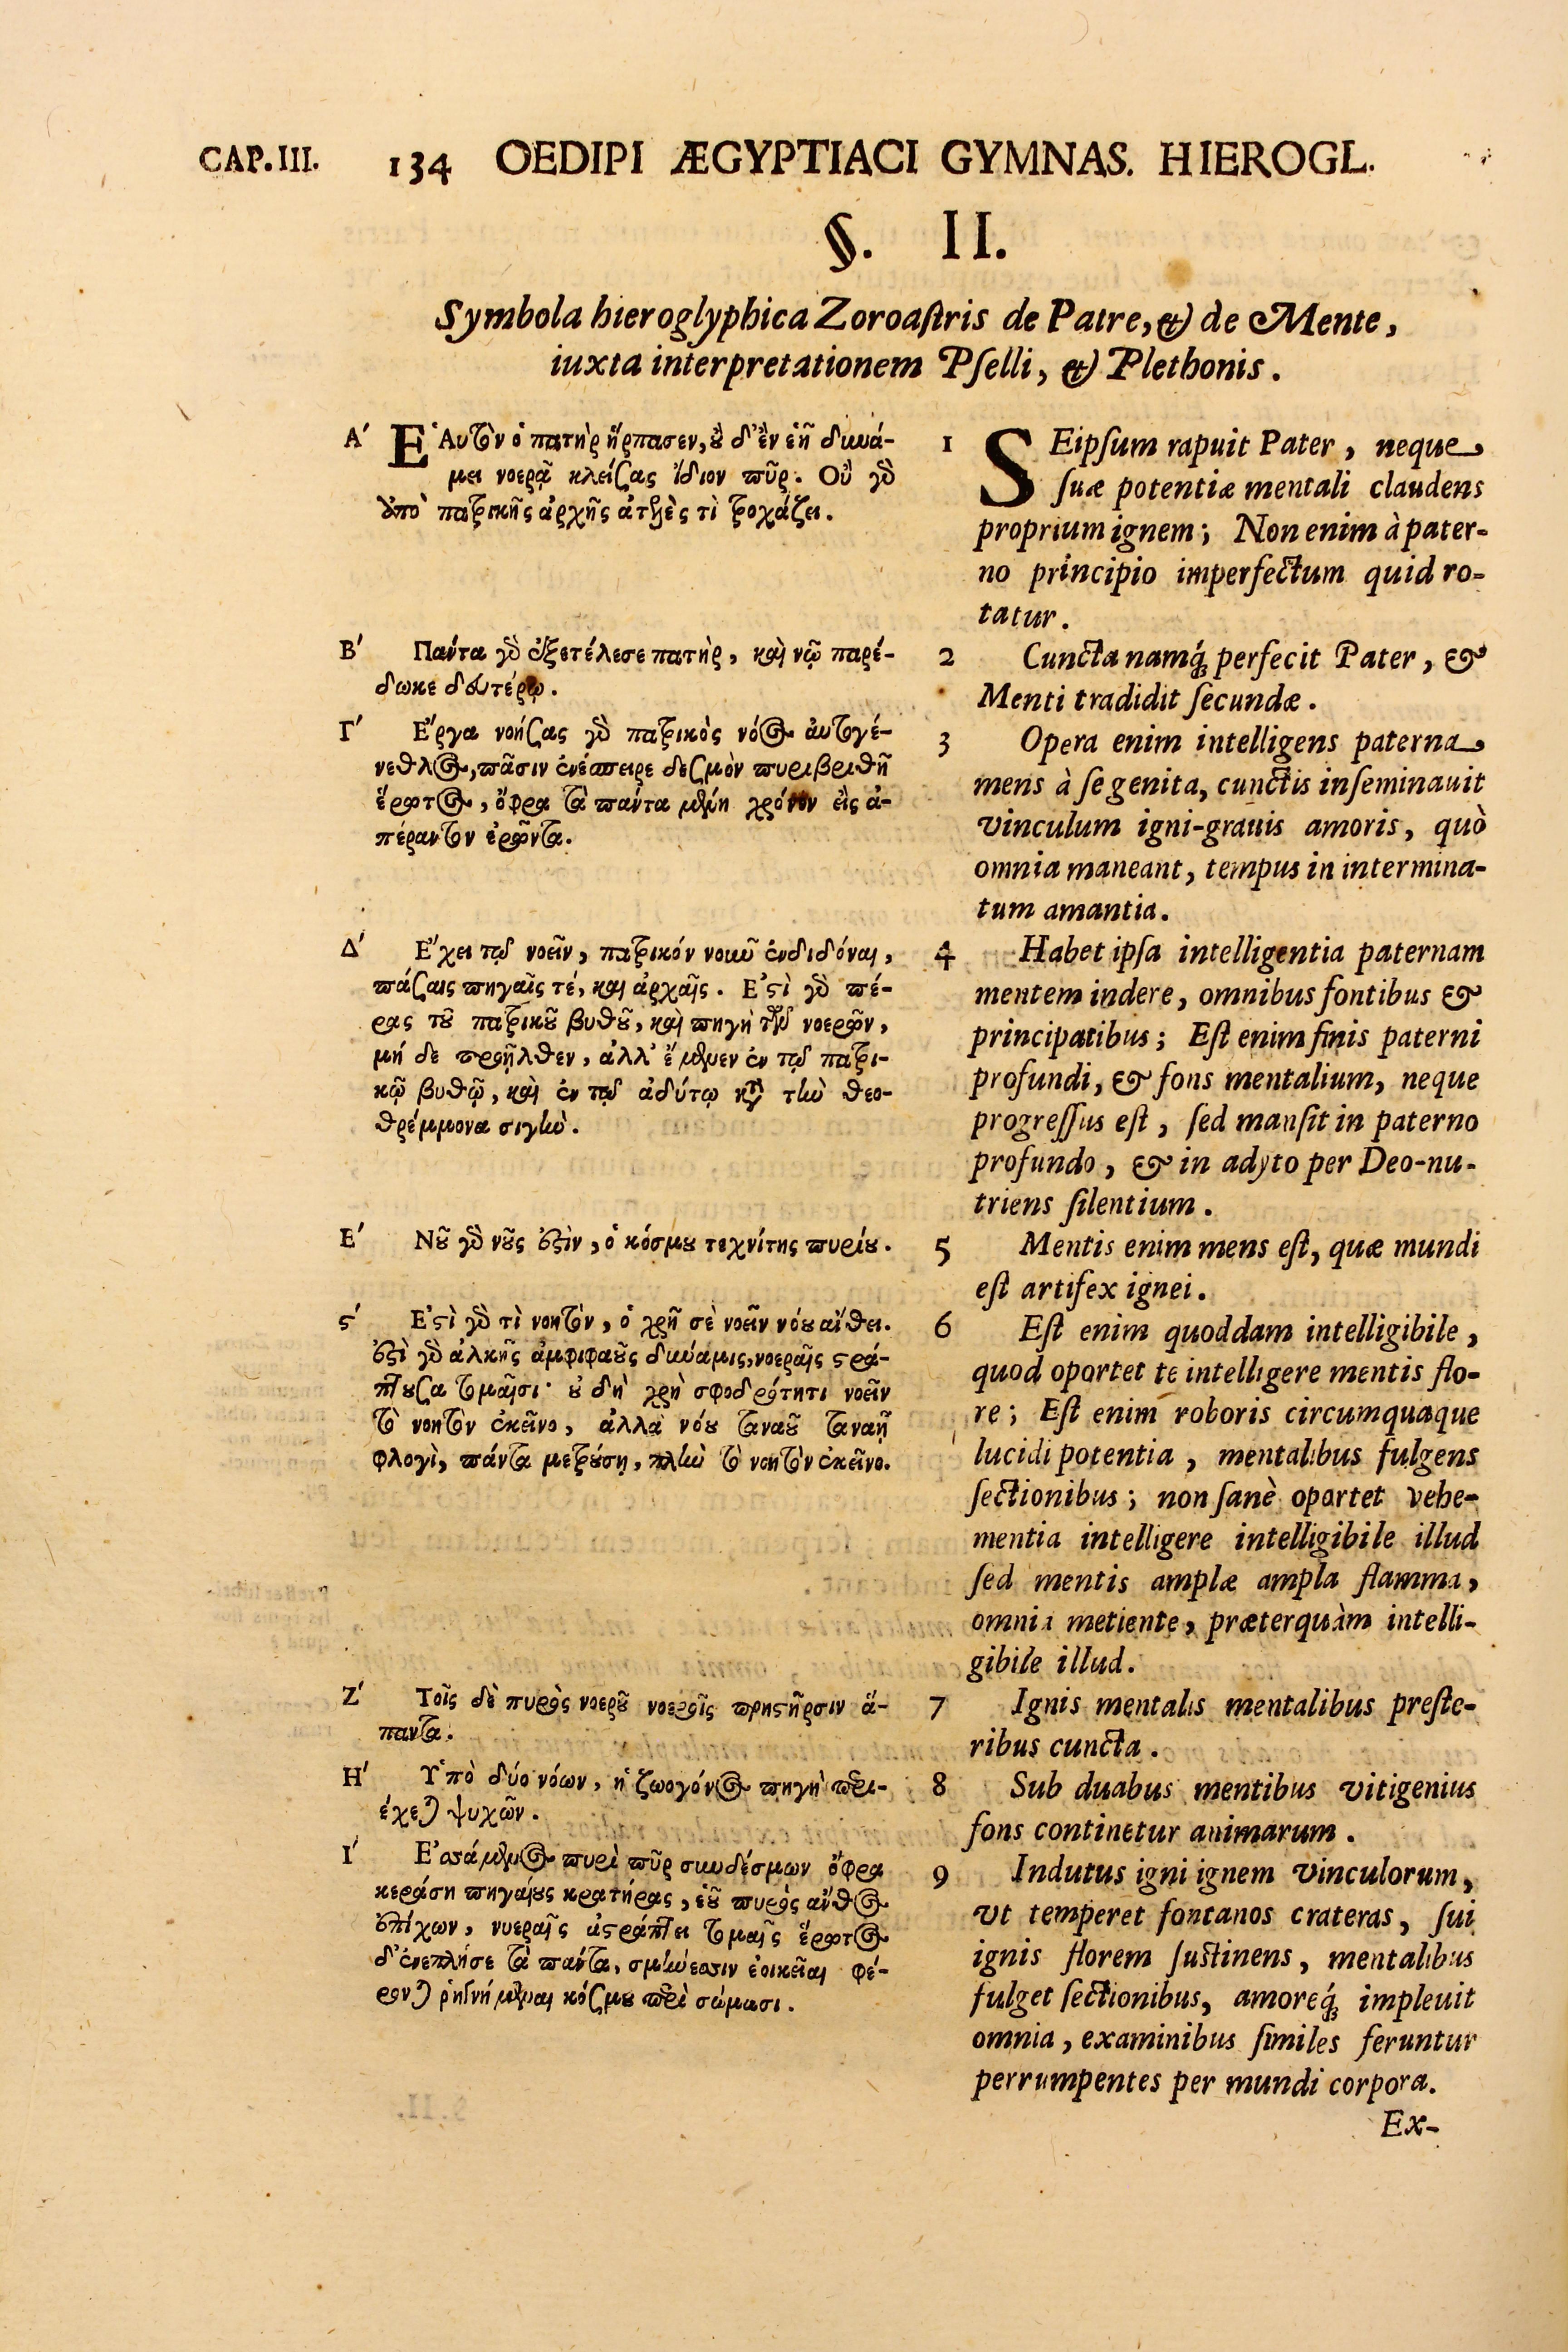 CAP. III. 134 OEDIPI ÆGYPTIACI GYMNAS. HIEROGL.
§. II.
Symbola hieroglyphica Zoroaſtris de Patre, & de Mente,
iuxta interpretationem Pſelli, & Plethonis.
Α΄ ἙΑυτὸν ὁ πατὴρ ἥρπασεν, οὐ δ'ἐν ἑῇ δυνά-
μει νοερᾷ κλείσας ἴδιον πῦρ. Οὐ γὸ
ὑπὸ πατρικῆς ἀρχῆς ἀτελὲς τὶ τροχάζει.
Β΄ Πάντα γὸ ἐξετέλεσε πατὴρ, καὶ νῷ παρέ-
δωκε δευτέρῳ.
Γ΄ Ἔργα νοήσας γὸ πατρικὸς νόος αὐτογέ-
νεθλος, πᾶσιν ἐνέσπειρε δεσμὸν πυριβριθῆ
ἔρωτος, ὄφρα τὰ πάντα μένῃ χρόνον εἰς ἀ-
πέραντον ἐρῶντα.
Δ΄ Ἔχει τῷ νοεῖν, πατρικόν νοιῦ ἐνδιδόναι,
πάσαις πηγαῖς τέ, καὶ ἀρχαῖς. Ἐστὶ γὸ πέ-
ρας τοῦ πατρικοῦ βυθοῦ, καὶ πηγὴ τῶν νοερῶν,
μή δε προῆλθεν, ἀλλ' ἔμενεν ἐν τῷ πατρι-
κῷ βυθῷ, καὶ ἐν τῷ ἀδύτῳ κατὰ τὴν θεο-
θρέμμονα σιγὴν.
Ε΄ Νοῦ γὸ νοῦς ἐστὶν, ὁ κόσμου τεχνίτης πυρίου.
ϛ΄ Ἐστὶ γὸ τὶ νοητὸν, ὁ χρῆ σὲ νοεῖν νόου αἴθει.
ἐστὶ γὸ ἀλκῆς ἀμφιφαοῦς δυνάμις, νοεραῖς στρά-
πτουσα τομαῖσι· οὐ δὴ χρὴ σφοδρότητι νοεῖν
τὸ νοητὸν ἐκεῖνο, ἀλλὰ νόου ταναοῦ ταναῇ
φλογὶ, πάντα μετρούσῃ, πλὴν τὸ νοητὸν ἐκεῖνο.
Ζ΄ Τοῖς δὲ πυρὸς νοεροῦ νοεροῖς πρηστῆρσιν ἅ-
παντα.
Η΄ Ὑπὸ δύο νόων, ἡ ζωογόνος πηγὴ περι-
έχεται ψυχῶν.
Ι΄ Ἐσσάμενος πυρὶ πῦρ συνδέσμων ὄφρα
κεράσῃ πηγαίους κρατῆρας, ἑοῦ πυρὸς ἄνθος
ἐπίχων, νυεραῖς ἀστράπτει τομαῖς ἔρωτος
δ'ἐνεπλησε τὰ πάντα, σμήνεσσιν ἐοικεῖαι φέ-
ρονται ῥηγνήμεναι κόσμου περὶ σώμασι.
1 SEipſum rapuit Pater, neque
ſuæ potentiæ mentali claudens
proprium ignem; Non enim à pater-
no principio imperfectum quid ro-
tatur.
2 Cuncta namq́; perfecit Pater, &
Menti tradidit ſecundæ.
3 Opera enim intelligens paterna
mens à ſe genita, cunctis inſeminauit
vinculum igni-grauis amoris, quò
omnia maneant, tempus in intermina-
tum amantia.
4 Habet ipſa intelligentia paternam
mentem indere, omnibus fontibus &
principatibus; Eſt enim finis paterni
profundi, & fons mentalium, neque
progreſſus eſt, ſed manſit in paterno
profundo, & in adyto per Deo-nu-
triens ſilentium.
5 Mentis enim mens eſt, quæ mundi
eſt artifex ignei.
6 Eſt enim quoddam intelligibile,
quod oportet te intelligere mentis flo-
re; Eſt enim roboris circumquaque
lucidi potentia, mentalibus fulgens
ſectionibus; non ſanè oportet vehe-
mentia intelligere intelligibile illud
ſed mentis amplæ ampla flamma,
omnia metiente, præterquàm intelli-
gibile illud.
7 Ignis mentalis mentalibus preſte-
ribus cuncta.
8 Sub duabus mentibus vitigenius
fons continetur animarum.
9 Indutus igni ignem vinculorum,
vt temperet fontanos crateras, ſui
ignis florem ſuſtinens, mentalibus
fulget ſectionibus, amoreq́; impleuit
omnia, examinibus ſimiles feruntur
perrumpentes per mundi corpora.
Ex-